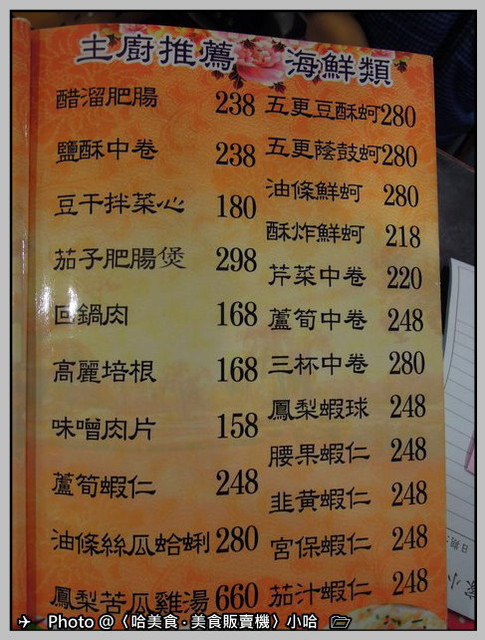 主廚推薦
醋溜肥腸 238
鹽酥中卷 238
豆干拌菜心 180
茄子肥腸煲 298
回鍋肉 168
高麗培根 168
味噌肉片 158
蘆筍蝦仁 248
油條絲瓜蛤蜊 280
鳳梨苦瓜雞湯 660
海鮮類
五更豆酥蚵 280
五更蔭鼓蚵 280
油條鮮蚵 280
酥炸鮮蚵 218
芹菜中卷 220
蘆筍中卷 248
三杯中卷 280
鳳梨蝦球 248
腰果蝦仁 248
韭黃蝦仁 248
宮保蝦仁 248
茄汁蝦仁 248
日期
Photo @〈哈美食·美食販賣機〉小哈